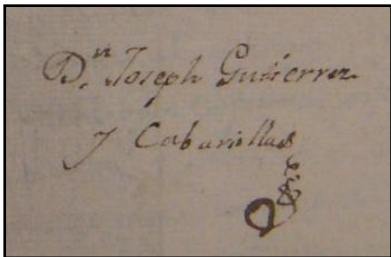 Dn. Joseph Gutierrez
y Cabanillas